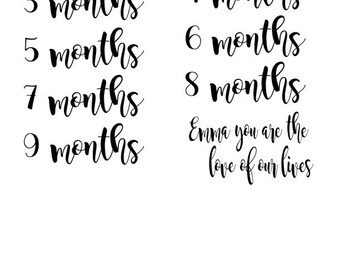 3 months
5 months
6 months
7 months
8 months
9 months
Emma you are the
love of our lives